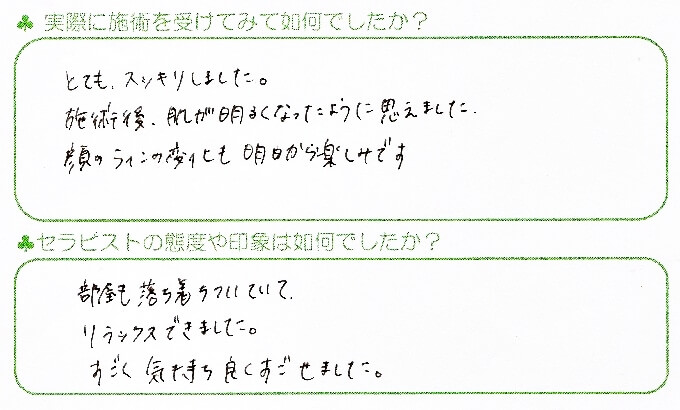 ♣ 実際に施術を受けてみて如何でしたか？
とても、スッキリしました。
施術後、肌が明るくなったように思えました.
顔のラインの変化も 明日から楽しみです
♣セラピストの態度や印象は如何でしたか？
部屋も落ち着ちついていて、
リラックスできました。
すごく 気持ち良くすごせました。